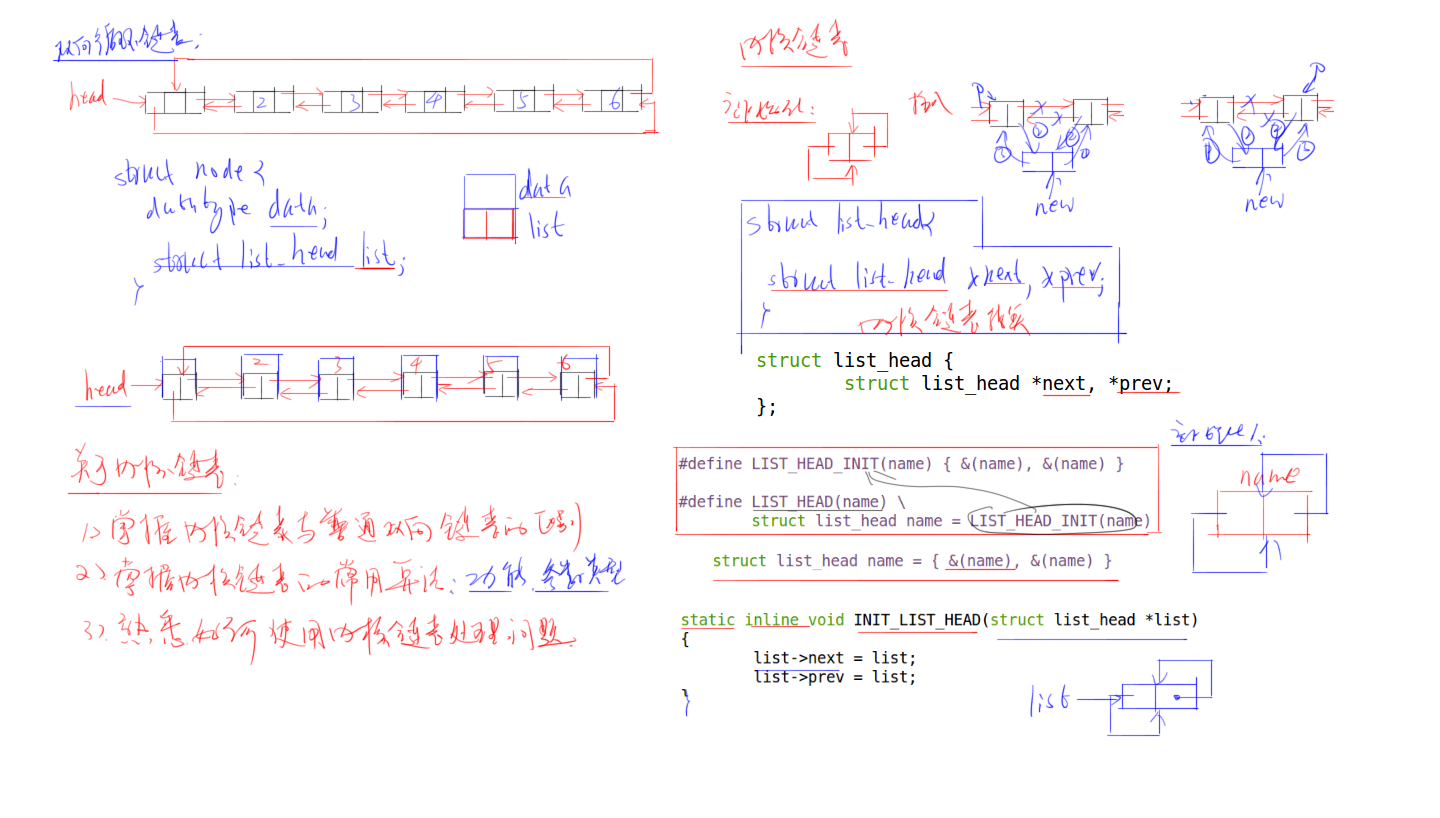 双向循环链表:
head
2 3 4 5 6
struct node {
datatype data;
struct list_head list;
}
data
list
head
2 3 4 5 6
关于内核链表:
1) 掌握内核链表与普通双向链表的区别
2) 掌握内核链表的常用算法: 功能 参数 类型
3) 熟悉如何使用内核链表处理问题.
内核链表
插入
P
① ②
new
P
① ②
new
struct list_head{
struct list_head *next, *prev;
}
内核链表
struct list_head {
struct list_head *next, *prev;
};
#define LIST_HEAD_INIT(name) { &(name), &(name) }
#define LIST_HEAD(name) \
struct list_head name = LIST_HEAD_INIT(name)
struct list_head name = { &(name), &(name) }
name
static inline void INIT_LIST_HEAD(struct list_head *list)
{
list->next = list;
list->prev = list;
}
list